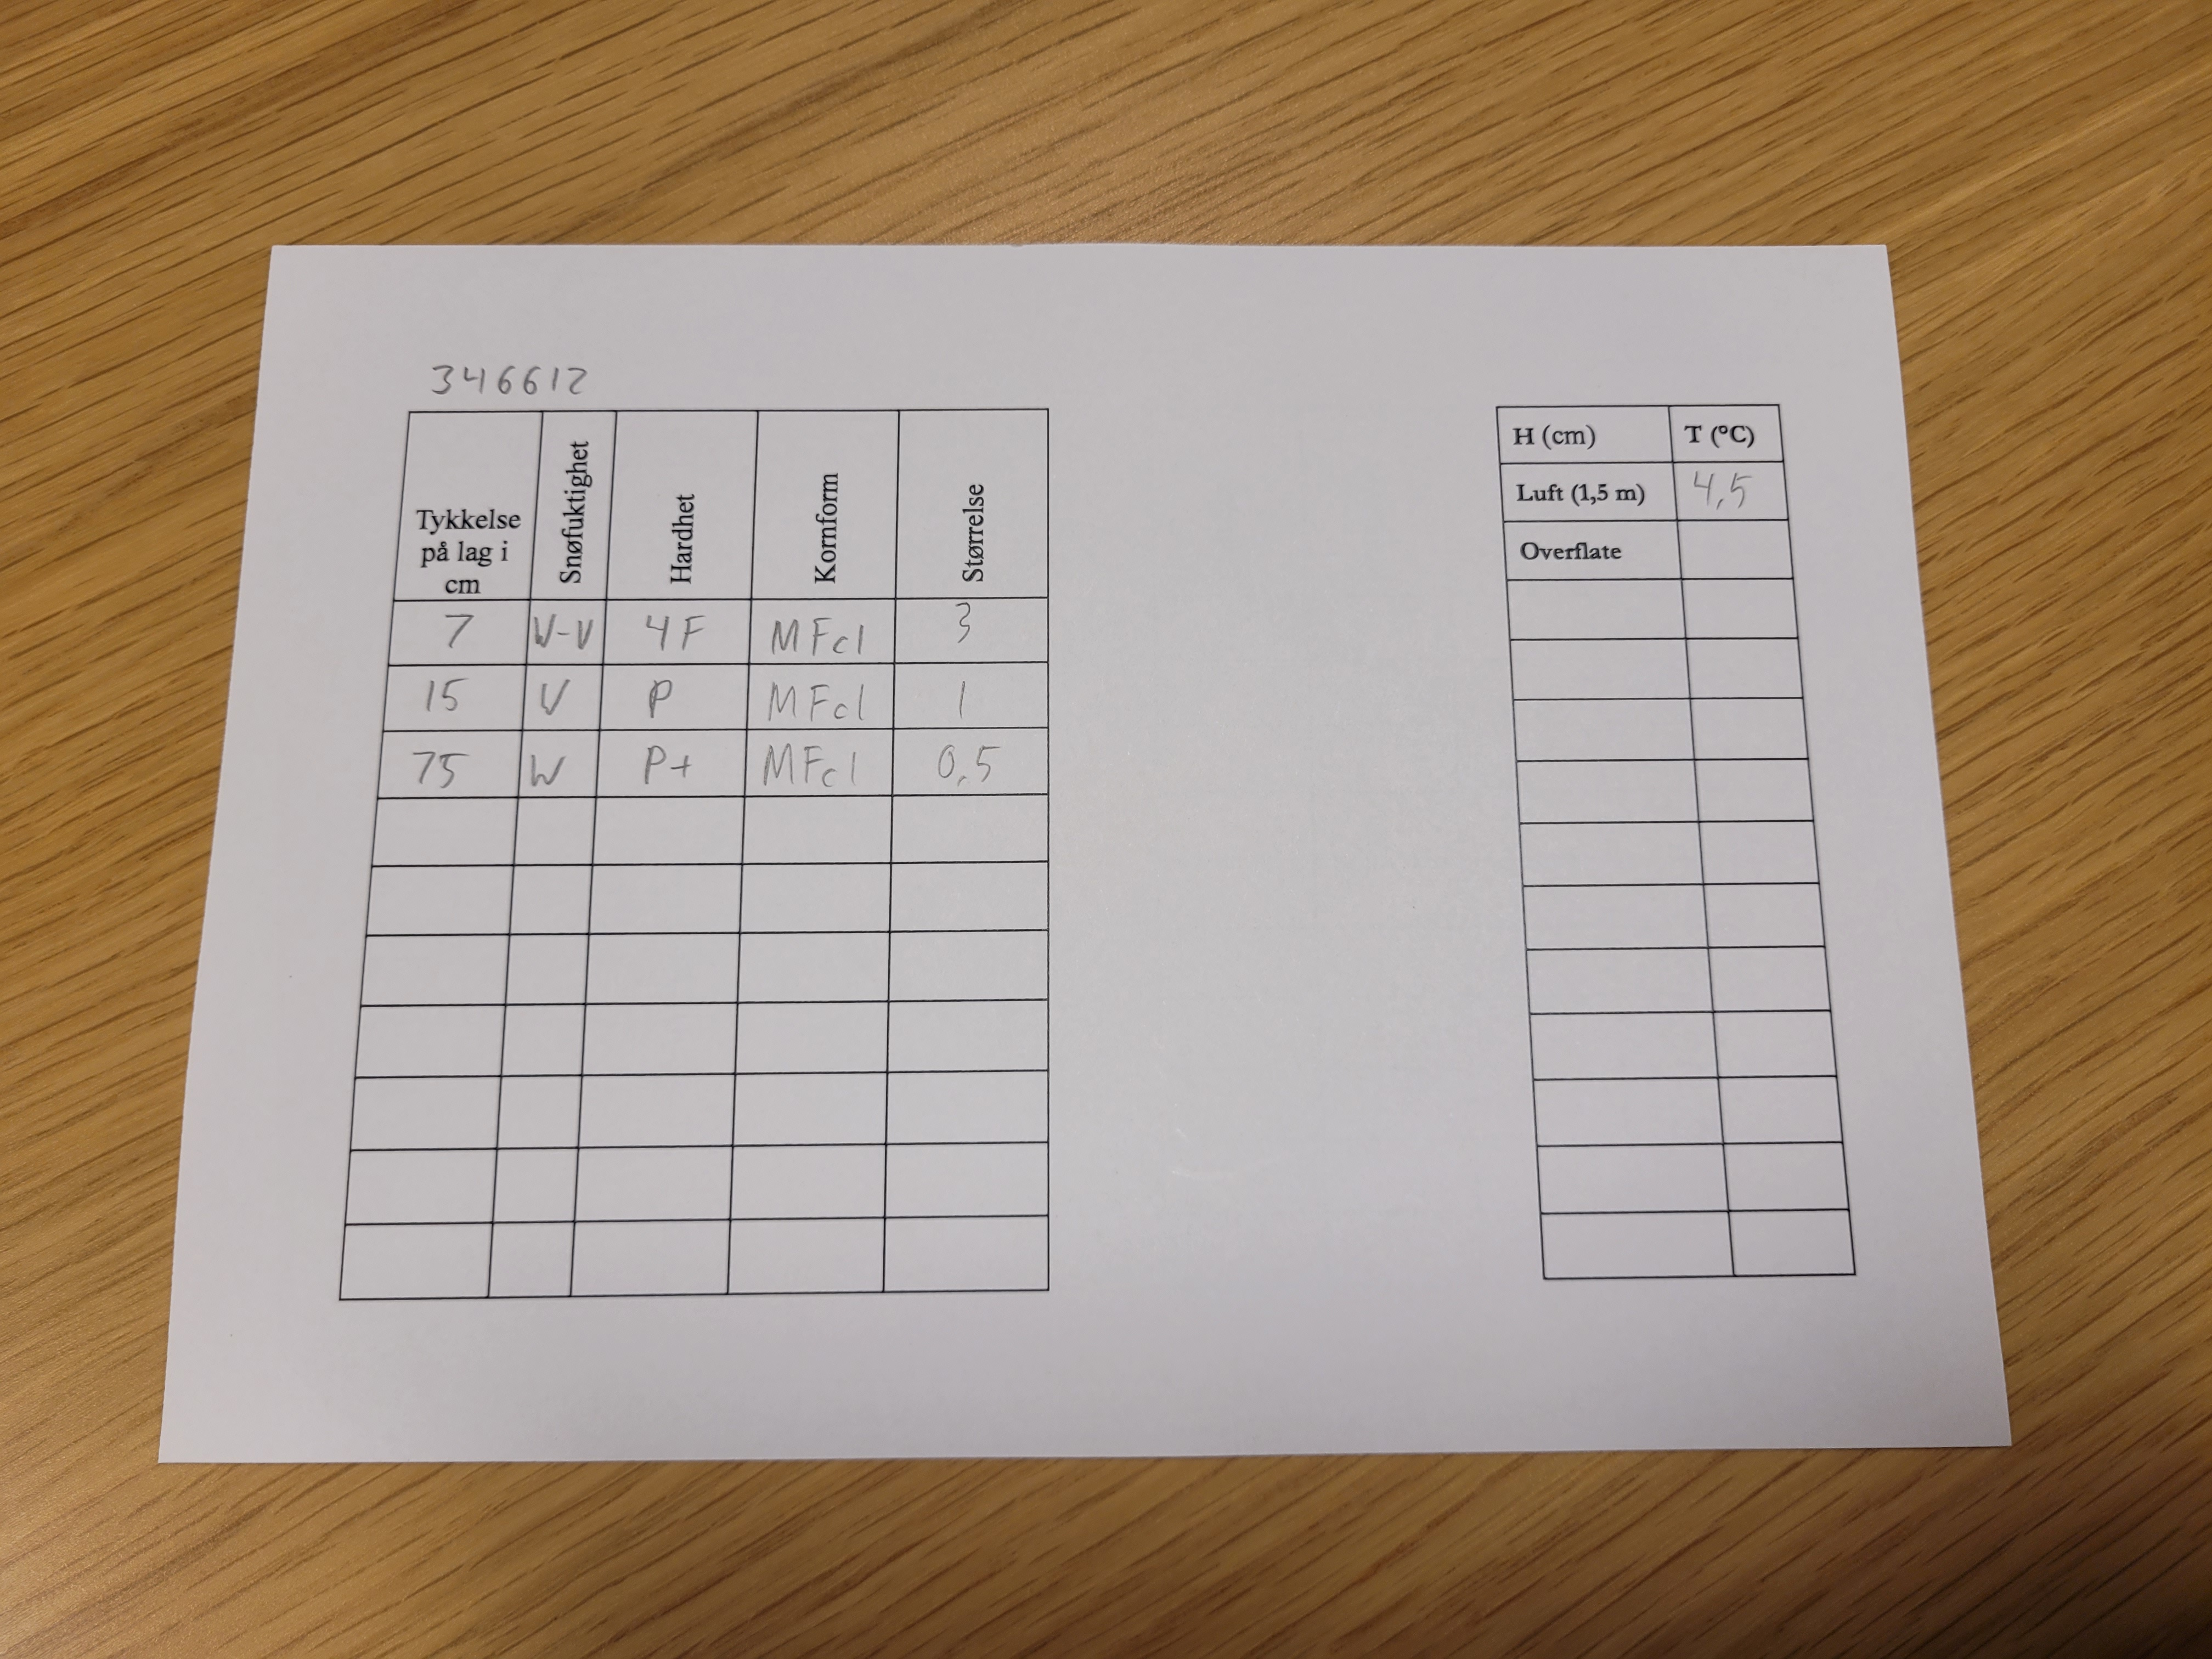 346612
Tykkelse på lag i cm Snøfuktighet Hardhet Kornform Størrelse
7 V-V 4F MFcl 3
15 V P MFcl 1
75 W P+ MFcl 0,5
H (cm) T (°C)
Luft (1,5 m) 4,5
Overflate